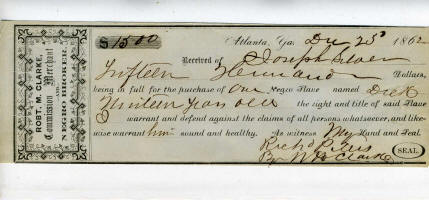 ROBT. M. CLARKE,
Commission Merchant
NEGRO BROKER.
$1500
Atlanta, Ga. Dec 23d 1862
Received of Joseph Silver
Fifteen Hundred Dollars,
being in full for the purchase of One Negro Slave named Dick
Years old the right and title of said Slave
I warrant and defend against the claims of all persons whatsoever, and like-
wise warrant him sound and healthy. As witness My Hand and Seal.
Richd
By R M Clarke
SEAL.